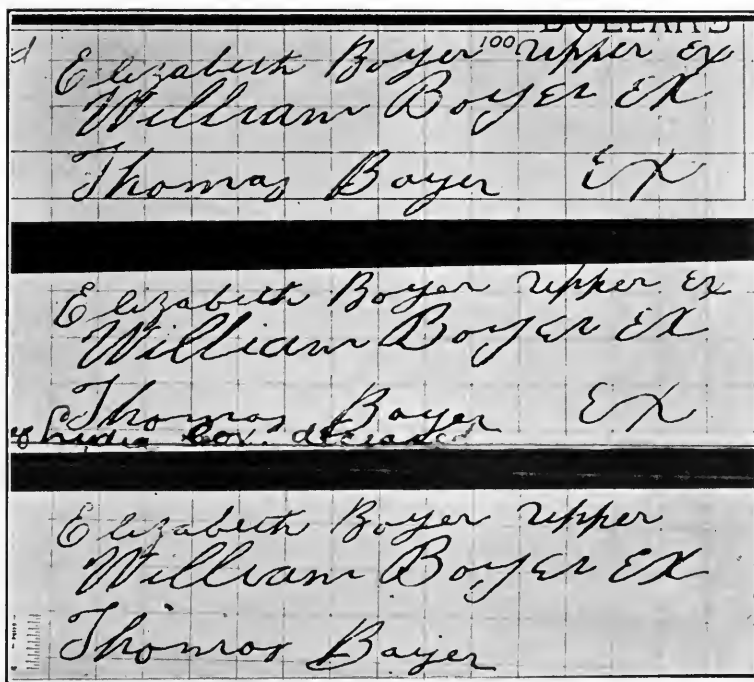 DOLLARS
Elizabeth Boyer 100 Upper Ex
William Boyer Ex
Thomas Boyer Ex
Elizabeth Boyer Upper Ex
William Boyer Ex
Thomas Boyer Ex
Lydia Cox. deceased
Elizabeth Boyer Upper
William Boyer Ex
Thomas Boyer